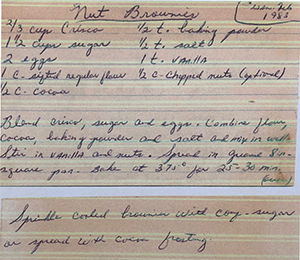 Nut Brownies
1983
2/3 cup Crisco 1/2 t. baking powder
1 1/2 cup sugar 1/2 t. salt
2 eggs 1 t. vanilla
1 c. sifted regular flour 1/2 c. chopped nuts (optional)
1/2 c. cocoa
Blend crisco, sugar and eggs. Combine flour,
cocoa, baking powder and salt and mix in well.
Stir in vanilla and nuts. Spread in greased 8 in.
square pan. Bake at 375° for 25-30 min.
(over)
Sprinkle cooled brownies with cony. sugar
or spread with cocoa frosting.